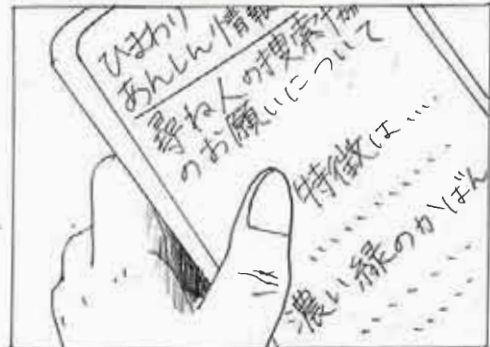 ひまわり
あんしん情報
尋ね人の捜索協
のお願いについて
特徴は…
濃い緑のかばん